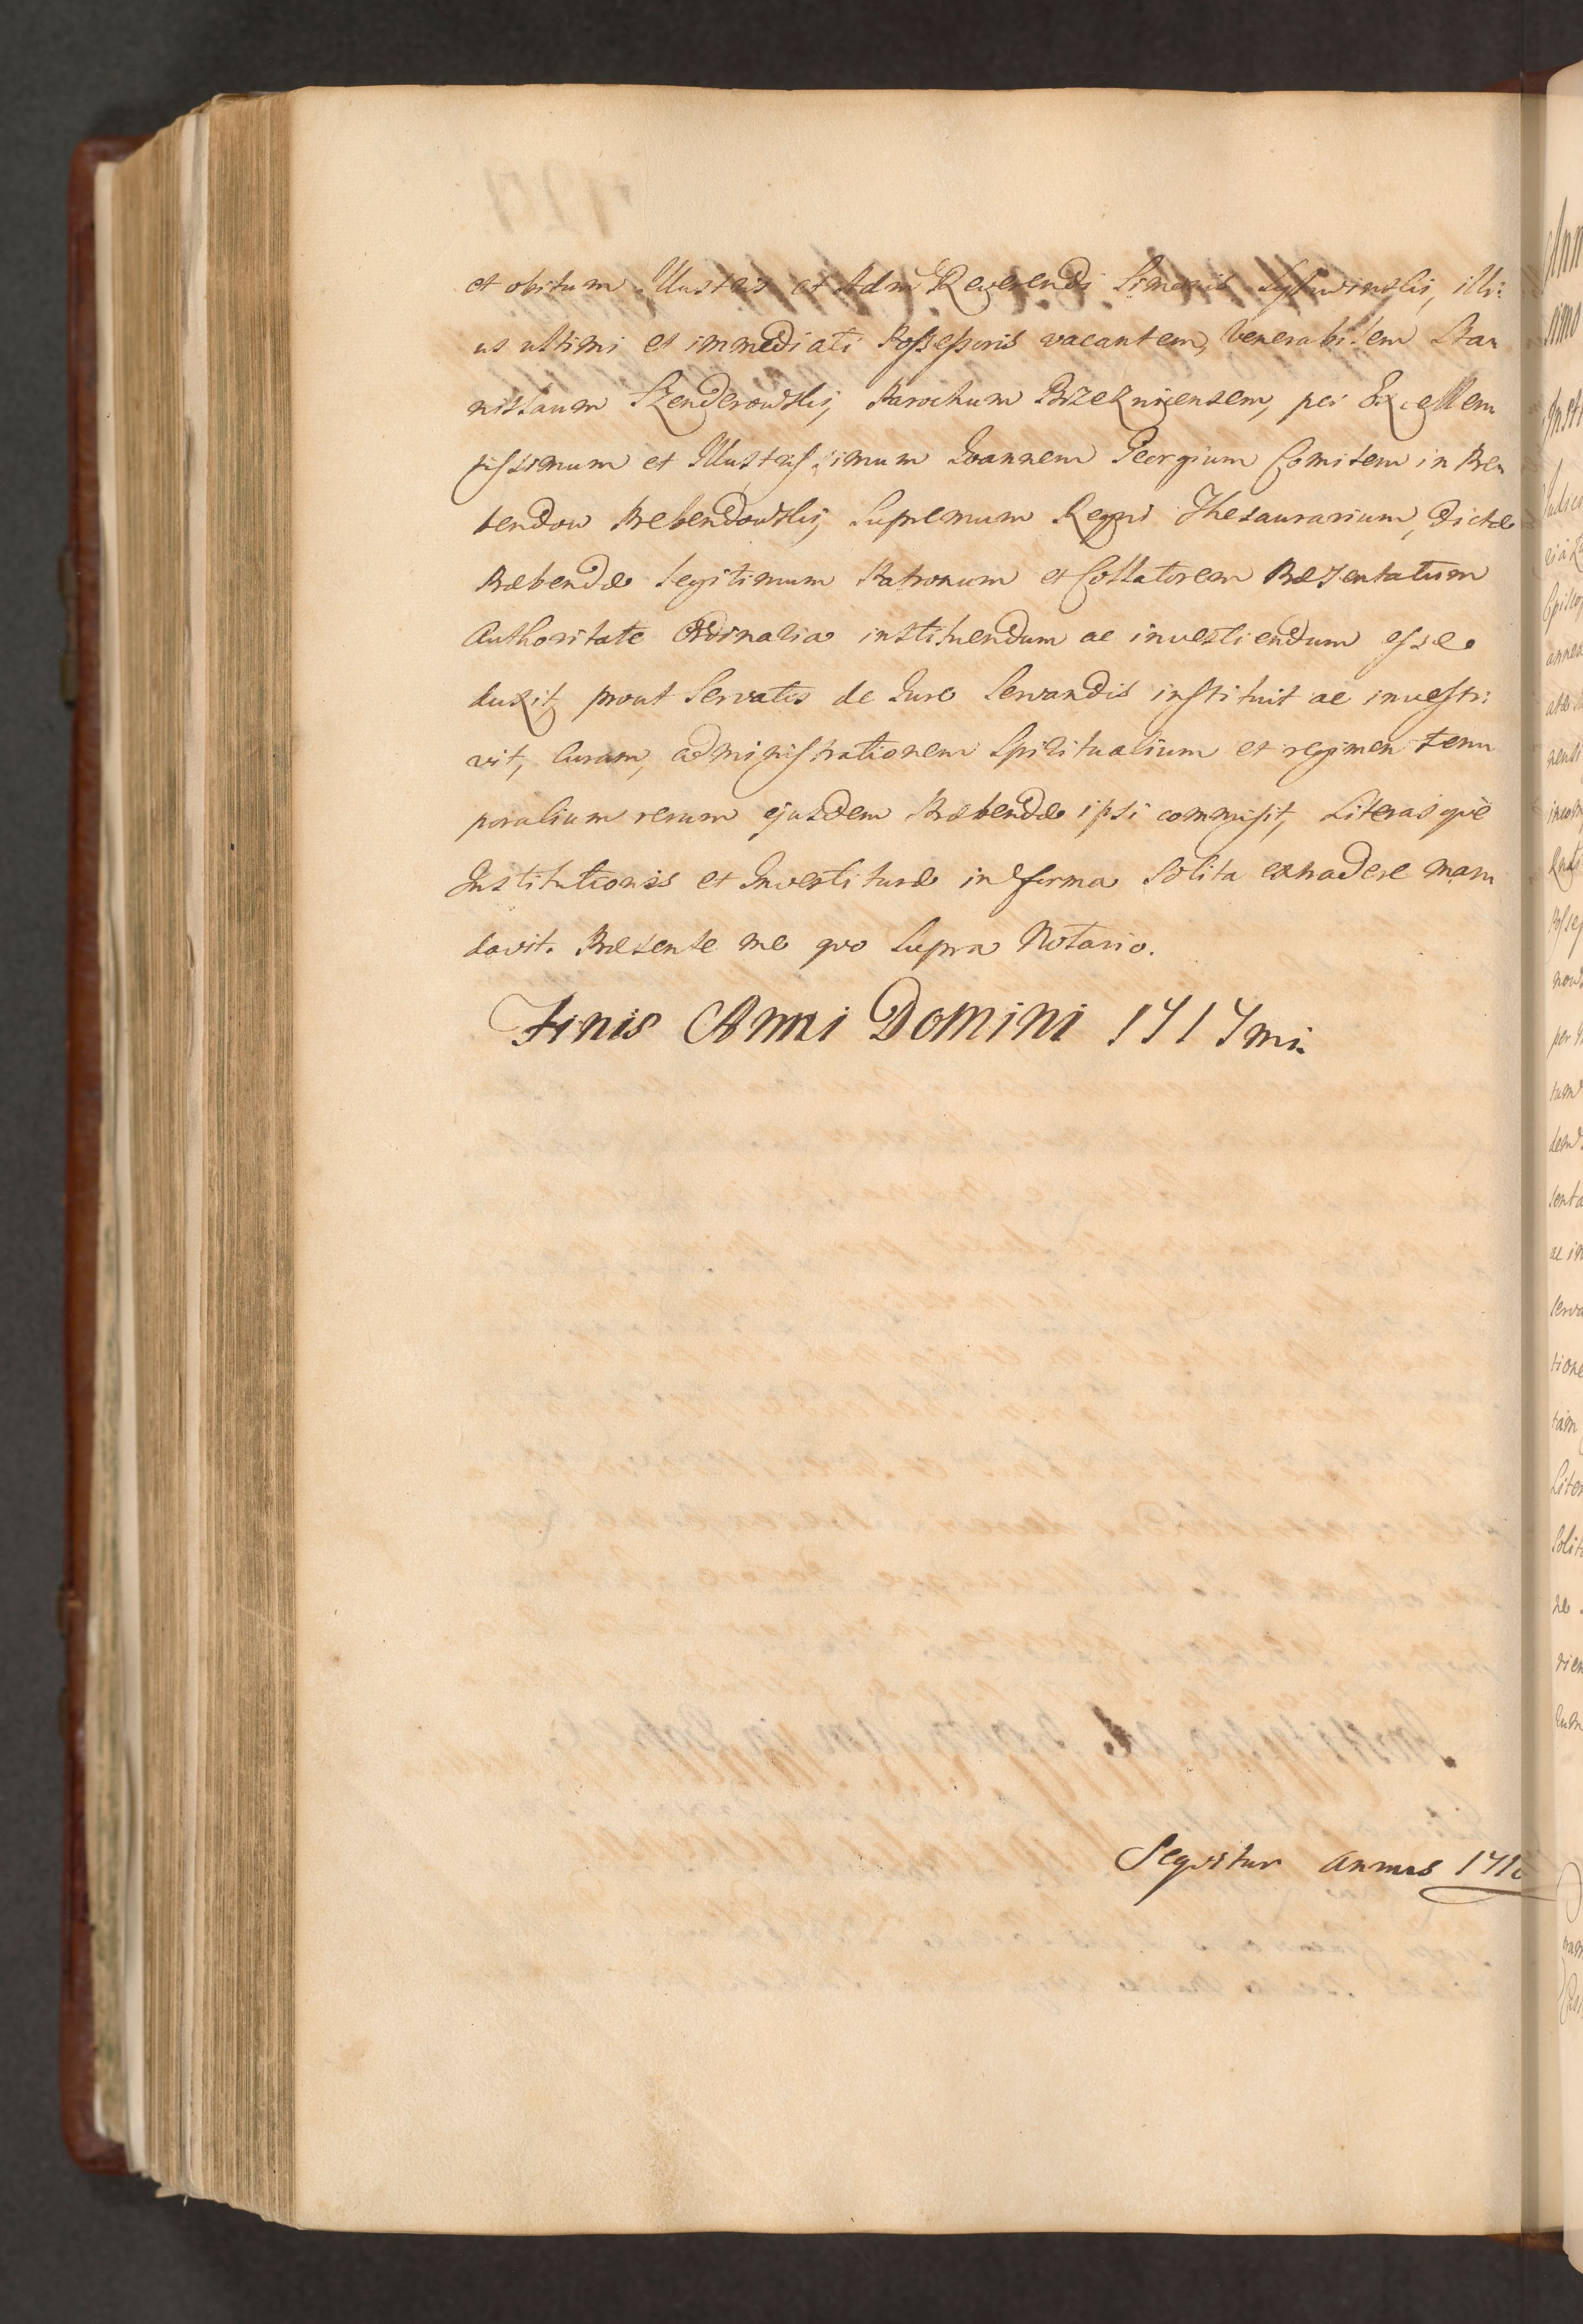 et obitum Illustris et Adm Reverendi Simonis illi:
us ultimi et immediati Possessoris vacantem, Venerabilem Sta
nislaum Szenderowski, Parochum Brzeznicensem, per Excellen
tissimum et Illustrissimum Ioannem Georgium Comitem in Pre
bendow Prebendowski, Supremum Regni Thesaurarium, dictæ
Præbendæ legitimum Patronum et Collatorem Præsentatum
Authoritate Ordinaria instituendum ac investiendum esse
duxit, prout Servatis de Iure Servandis instituit ac investi:
vit, Curam, administrationem Spiritualium et regimen tem
poralium rerum ejusdem Præbendæ ipsi commisit, Literasque
Institutionis et Investituræ in forma Solita extradere man
davit. Præsente me quo Supra Notario.
Finis Anni Domini 1717mi.
Sequitur annus 1718
 Ann
simo
Insti
Judica
Episcop
annex
nensi
Posses
per I
tum
dem
senta
ac in
serva
tione
tam
Liter
Solit